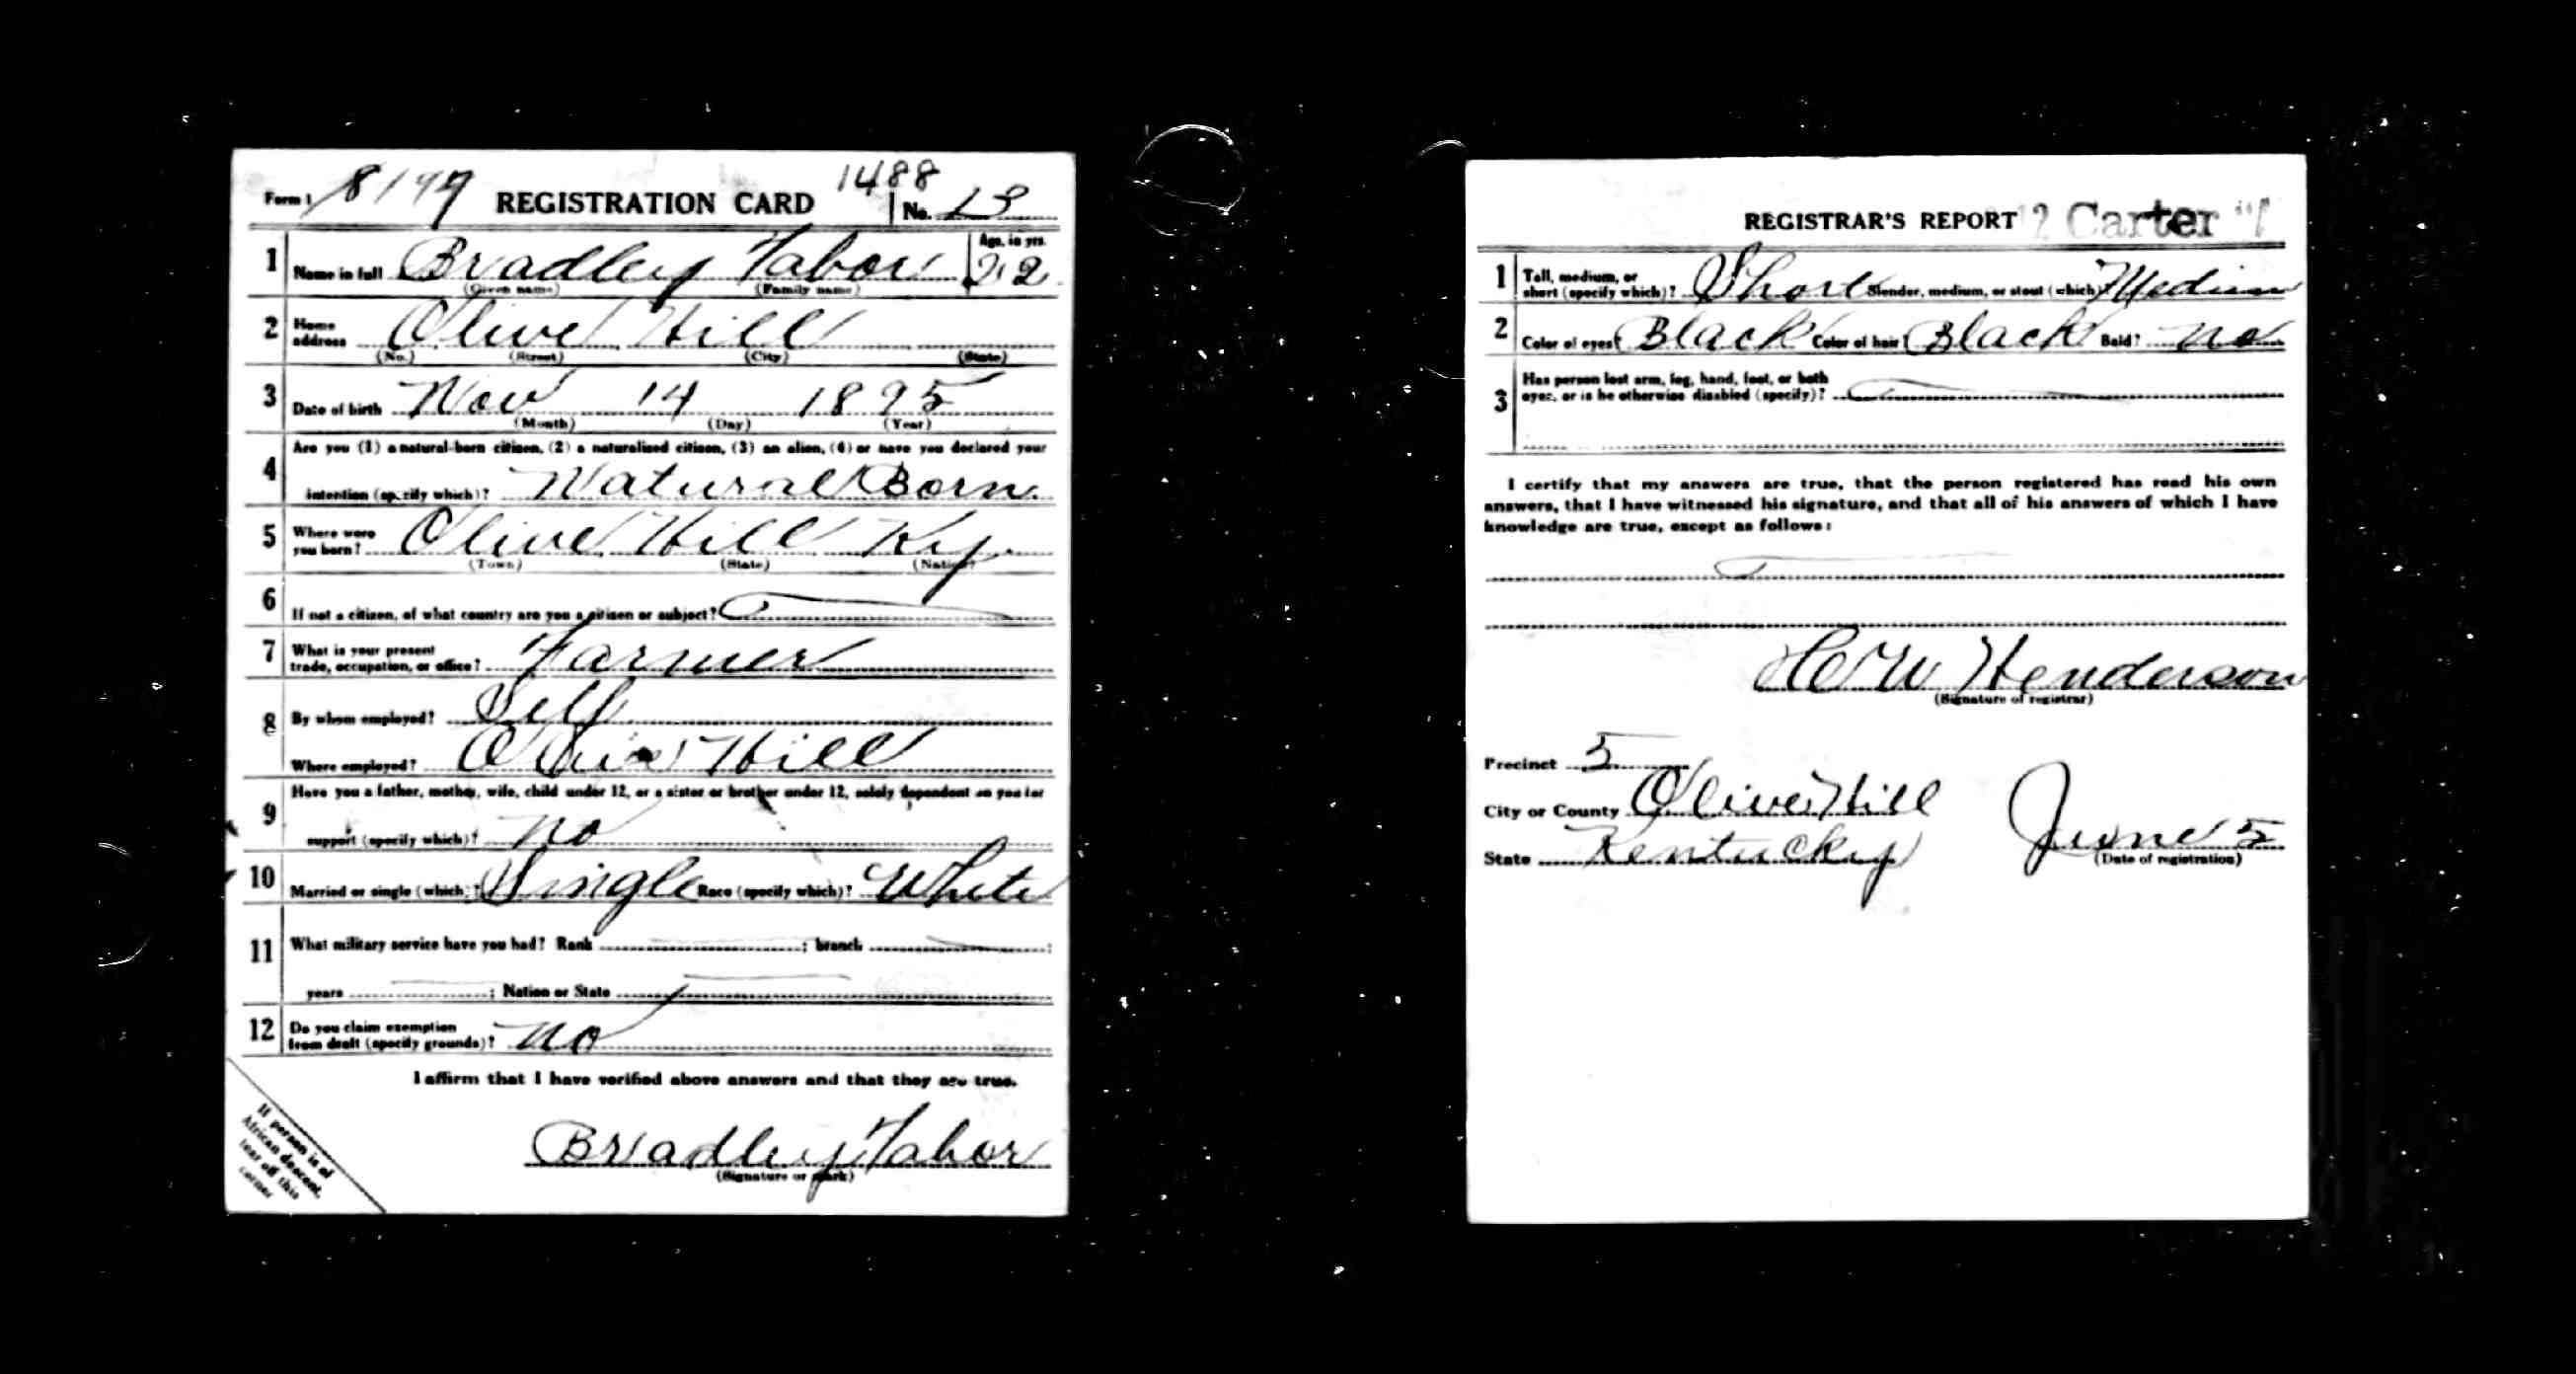 Form 1 REGISTRATION CARD 1488 No. 13
1 Name in full Bradley Tabor Age, in yrs. 22
(Given name) (Family name)
2 Home address Olive Hill
(No.) (Street) (City) (State)
3 Date of birth Nov 14 1895
(Month) (Day) (Year)
4 Are you (1) a natural-born citizen, (2) a naturalized citizen, (3) an alien, (4) or have you declared your
intention (specify which)? Natural Born
5 Where were you born? Olive Hill Ky.
(Town) (State) (Nation)
6 If not a citizen, of what country are you a citizen or subject?
7 What is your present
trade, occupation, or office? Farmer
8 By whom employed? Self
Where employed? Olive Hill
9 Have you a father, mother, wife, child under 12, or a sister or brother under 12, solely dependent on you for
support (specify which)? no
10 Married or single (which)? Single Race (specify which)? White
11 What military service have you had? Rank ; branch ;
years ; Nation or State
12 Do you claim exemption
from draft (specify grounds)? no
I affirm that I have verified above answers and that they are true.
Bradley Tabor
(Signature or mark)
If person is of
African descent,
tear off this
corner
REGISTRAR'S REPORT Carter
1 Tall, medium, or
short (specify which)? Short Slender, medium, or stout (which)? Medium
2 Color of eyes? Black Color of hair? Black Bald? no
3 Has person lost arm, leg, hand, foot, or both
eyes, or is he otherwise disabled (specify)?
I certify that my answers are true, that the person registered has read his own
answers, that I have witnessed his signature, and that all of his answers of which I have
knowledge are true, except as follows:
Henderson
(Signature of registrar)
Precinct 5
City or County Olive Hill
State Kentucky June 5
(Date of registration)